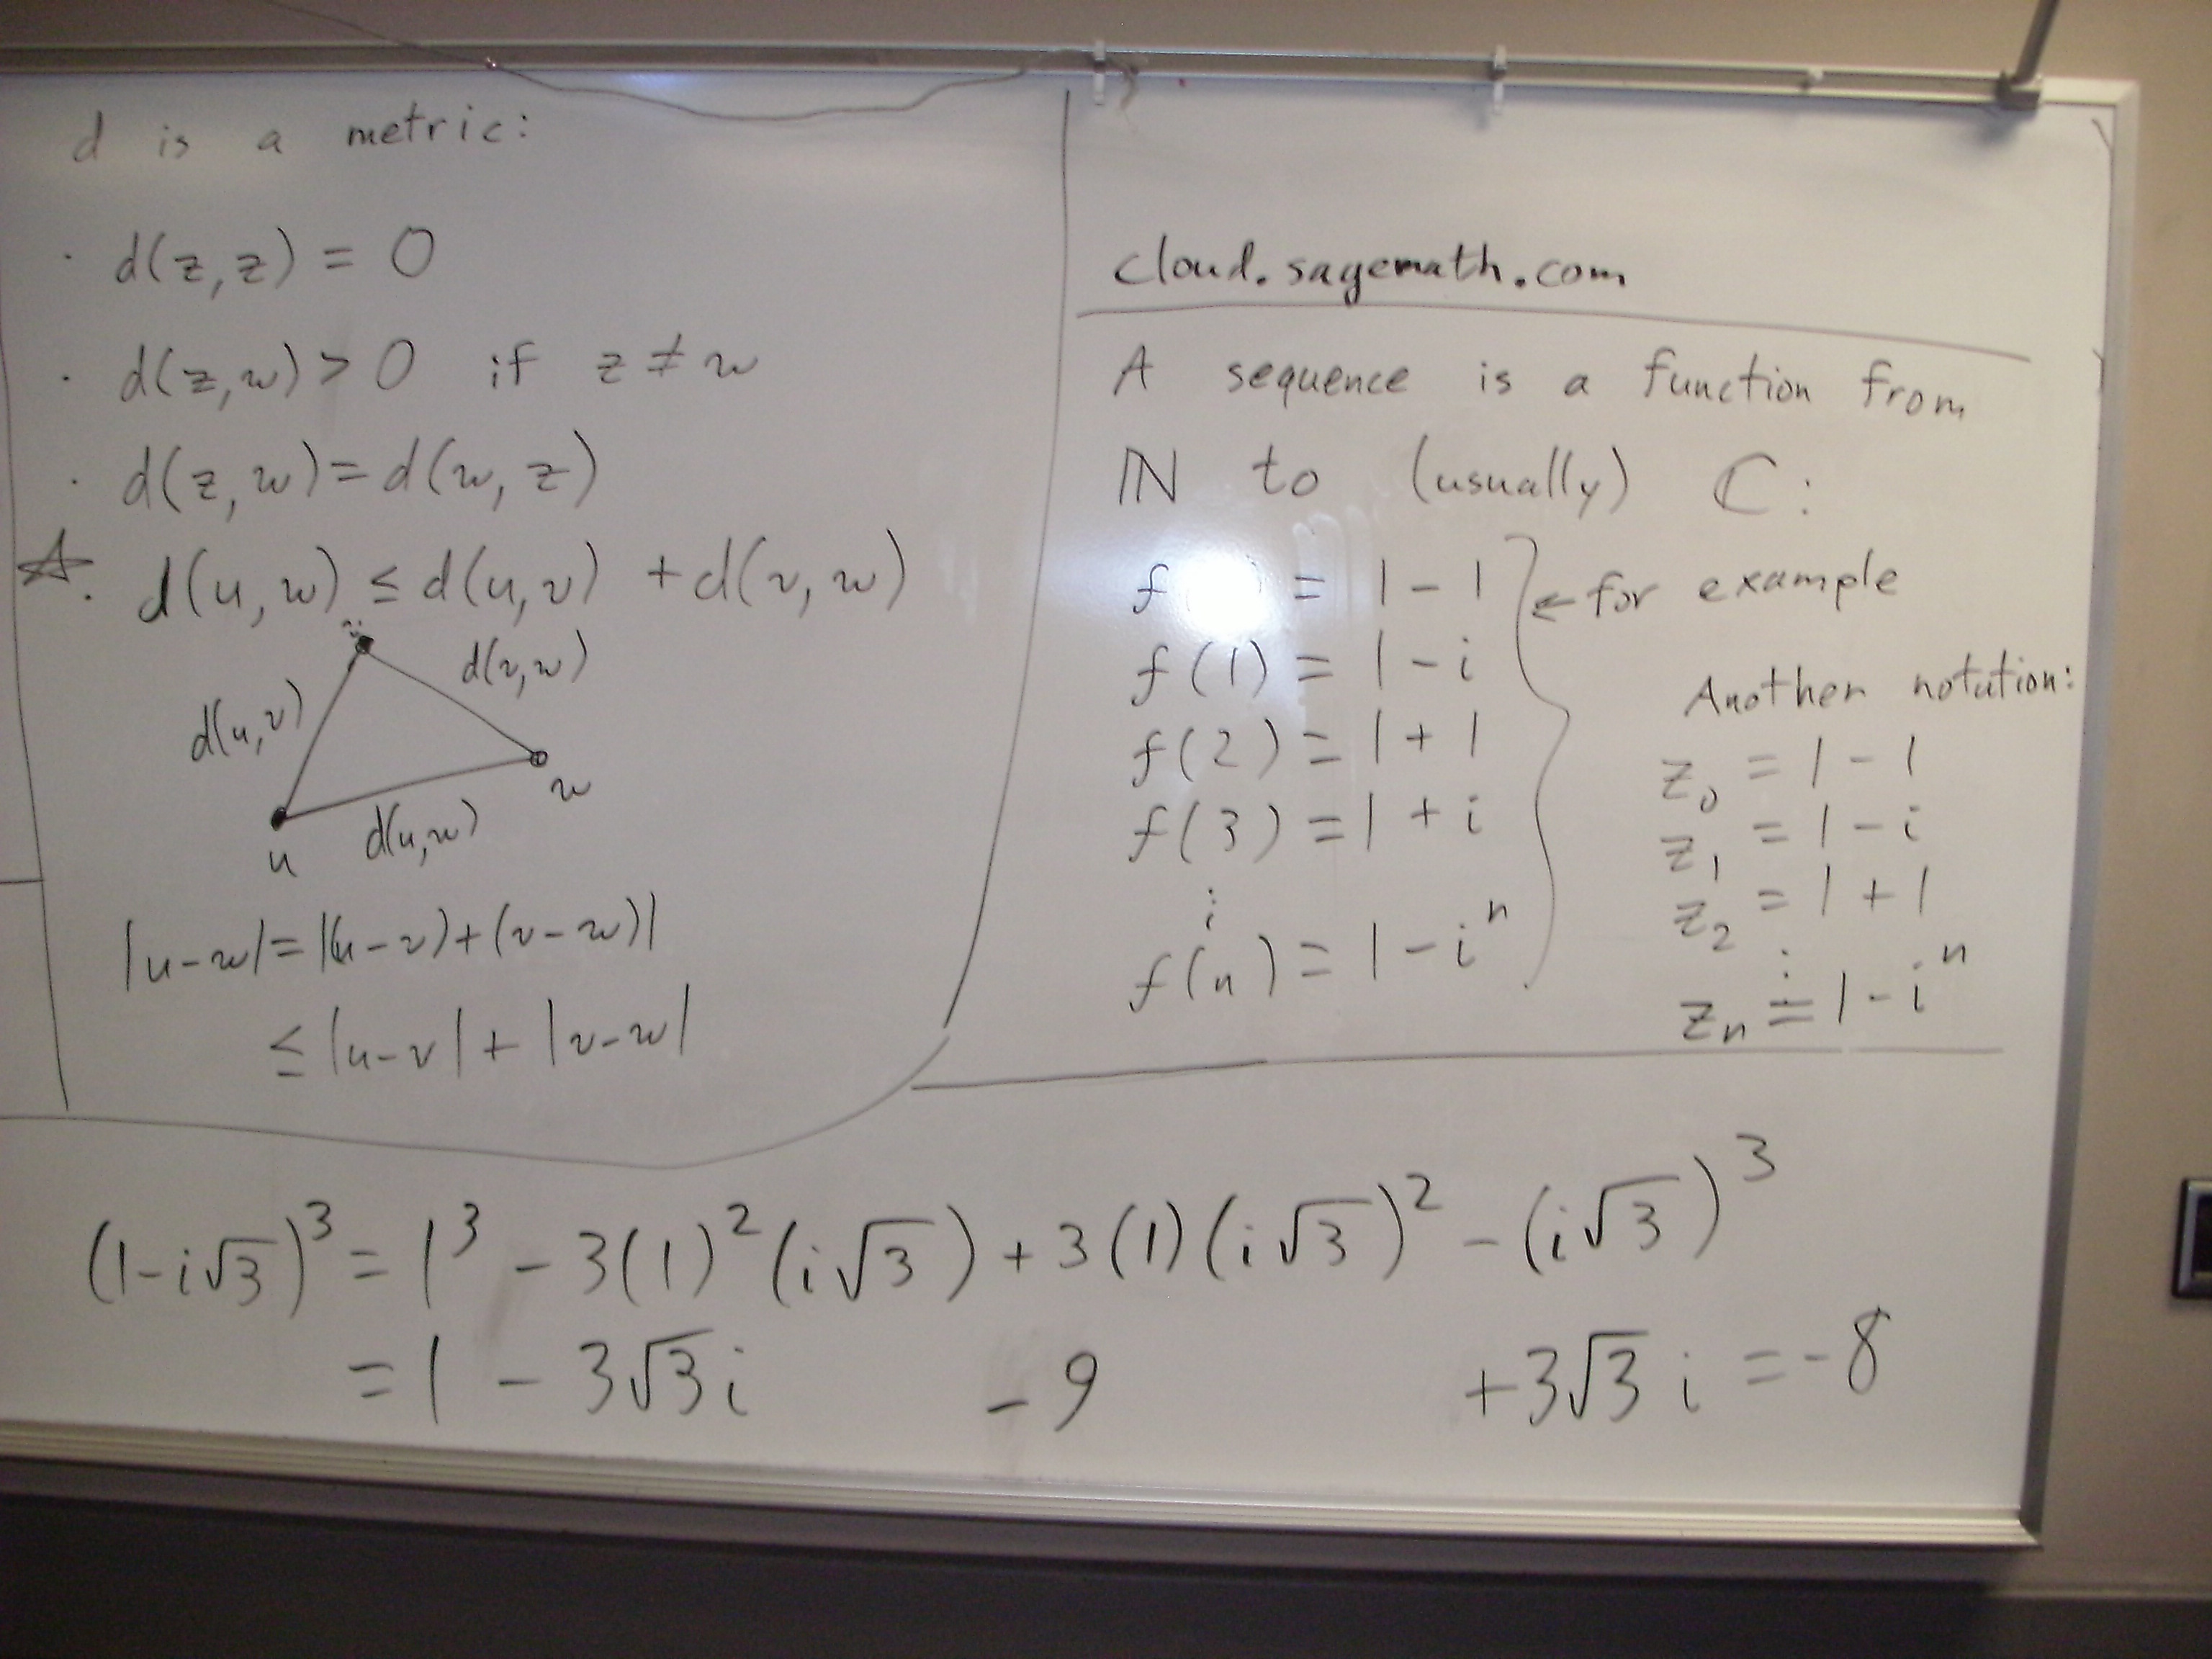 d is a metric:
· d(z,z) = 0
· d(z,w) > 0 if z ≠ w
· d(z,w) = d(w,z)
☆· d(u,w) ≤ d(u,v) + d(v,w)
v
d(v,w)
d(u,v)
w
d(u,w)
u
|u-w| = |(u-v)+(v-w)|
≤ |u-v| + |v-w|
cloud.sagemath.com
A sequence is a function from
ℕ to (usually) ℂ:
f = 1 - 1 ← for example
f(1) = 1 - i
f(2) = 1 + 1
f(3) = 1 + i
⋮
f(n) = 1 - iⁿ
Another notation:
z₀ = 1 - 1
z₁ = 1 - i
z₂ = 1 + 1
⋮
zₙ = 1 - iⁿ
(1-i√3)³ = 1³ - 3(1)²(i√3) + 3(1)(i√3)² - (i√3)³
= 1 - 3√3i - 9 + 3√3 i = -8